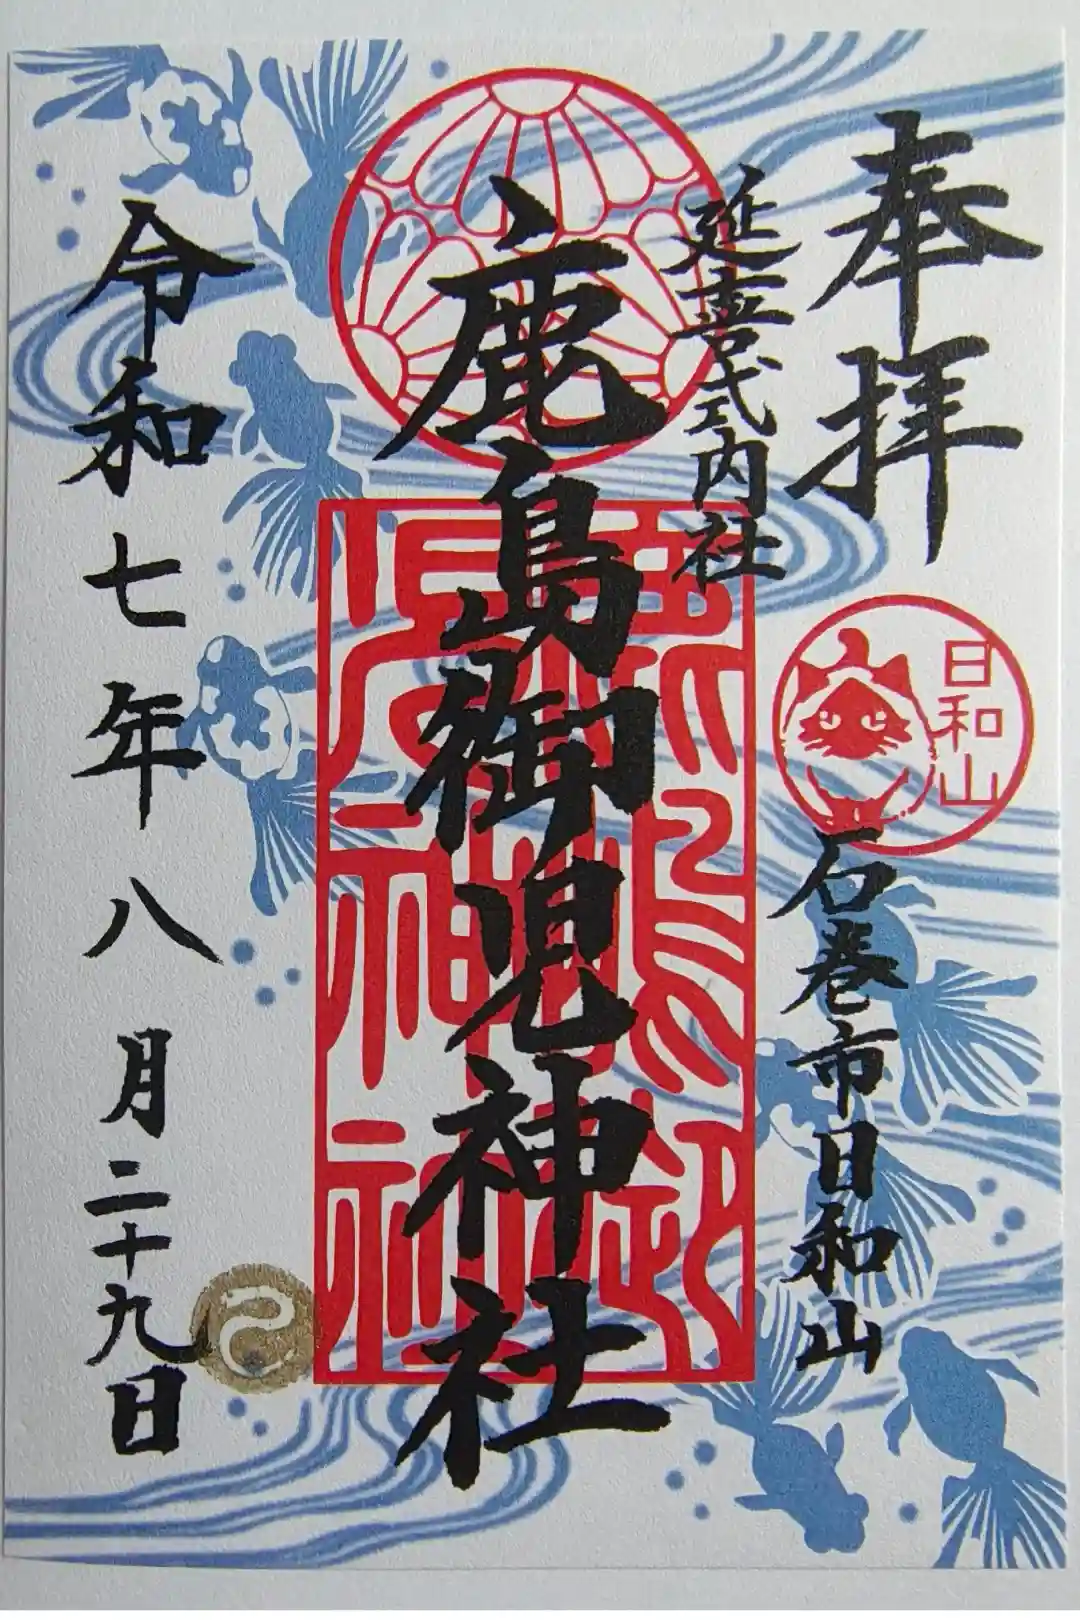 奉拝
日和山
石巻市日和山
延喜式内社
鹿島御児神社
鹿島御児神社
令和七年八月二十九日